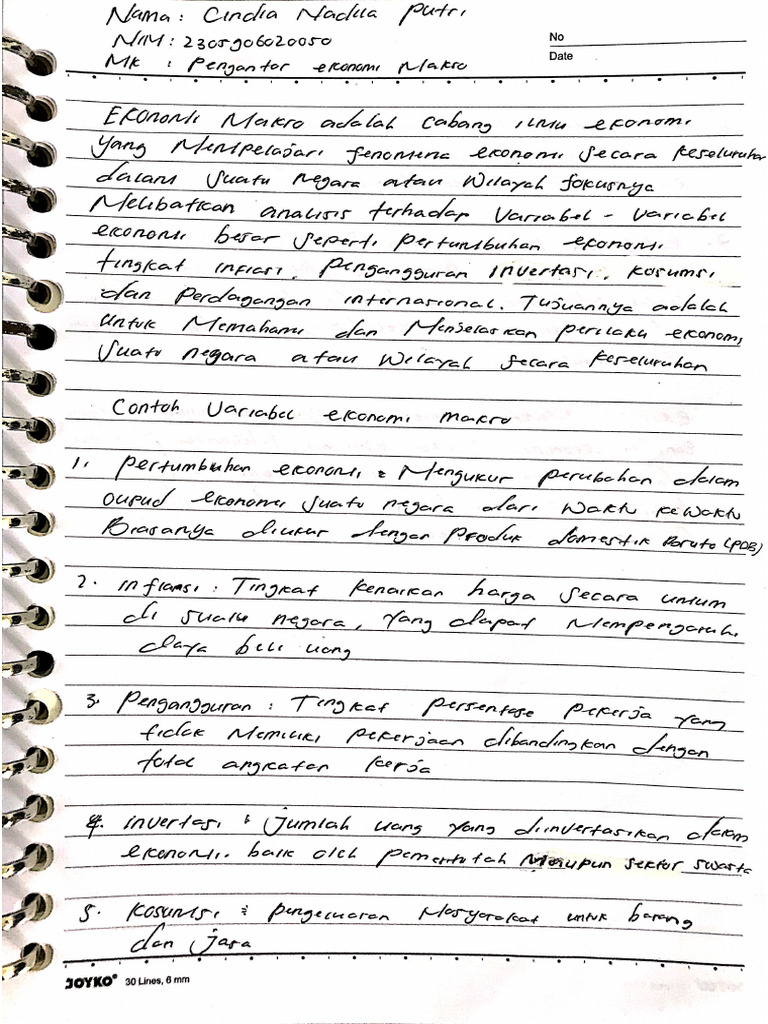 Nama : Cindia Nadila Putri
NIM : 2305906020050
MK : Pengantar ekonomi Makro
No
Date
Ekonomi Makro adalah cabang ilmu ekonomi
yang Mempelajari fenomena ekonomi secara keseluruhan
dalam suatu negara atau wilayah fokusnya
Melibatkan analisis terhadap variabel - variabel
ekonomi besar seperti pertumbuhan ekonomi
tingkat inflasi, pengangguran invertasi, kosumsi
dan Perdagangan internasional. Tujuannya adalah
untuk Memahami dan Menjelaskan perilaku ekonomi
suatu negara atau wilayah secara keseluruhan
Contoh Variabel ekonomi makro
1. pertumbuhan ekonomi : Mengukur perubahan dalam
oupud ekonomi suatu negara dari waktu kewaktu
Biasanya diukur dengan produk domestik Boruto (PDB)
2. inflamsi : Tingkat kenaikan harga secara umum
di suatu negara, yang dapat Mempengaruhi
daya beli uang
3. Pengangguran : Tingkat persentase pekerja yang
tidak Memiliki pekerjaan dibandingkan dengan
total angkatan kerja
4. invertasi : Jumlah uang yang diinvertasikan dalam
ekonomi. baik oleh pemerintah Maupun sektor swasta
5. Kosumsi : pengeluaran Masyarakat untuk barang
dan jasa
JOYKO 30 Lines, 6 mm